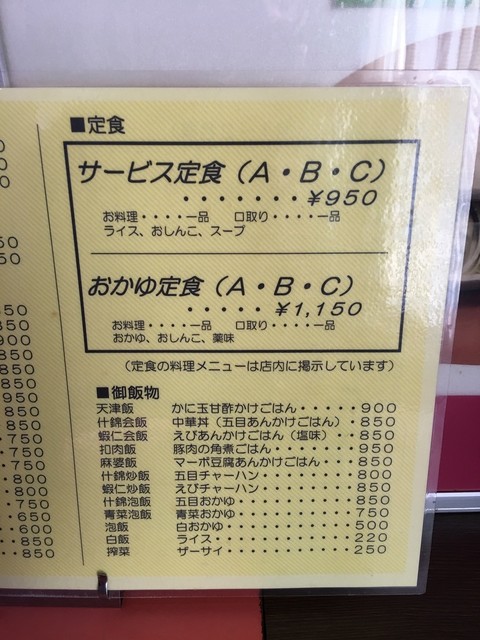 ■定食
サービス定食（A・B・C）
・・・・・・・¥950
お料理・・・・一品　口取り・・・・一品
ライス、おしんこ、スープ
おかゆ定食（A・B・C）
・・・・・¥1,150
お料理・・・・一品　口取り・・・・一品
おかゆ、おしんこ、薬味
（定食の料理メニューは店内に掲示しています）
■御飯物
天津飯　かに玉甘酢かけごはん・・・・・900
什錦会飯　中華丼（五目あんかけごはん）・850
蝦仁会飯　えびあんかけごはん（塩味）・・850
扣肉飯　豚肉の角煮ごはん・・・・・・・950
麻婆飯　マーボ豆腐あんかけごはん・・・850
什錦炒飯　五目チャーハン・・・・・・・・800
蝦仁炒飯　えびチャーハン・・・・・・・・800
什錦泡飯　五目おかゆ・・・・・・・・・・850
青菜泡飯　青菜おかゆ・・・・・・・・・・750
泡飯　白おかゆ・・・・・・・・・・・500
白飯　ライス・・・・・・・・・・・・220
搾菜　ザーサイ・・・・・・・・・・・250
850
850
900
850
850
950
850
・750
・850
・750
・・800
・・800
・750
・・650
・・600
・・850